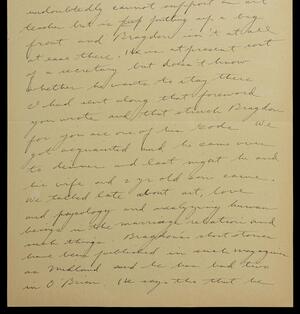 undoubtedly cannot support an art
teacher but is keep putting up a big
front and Bragdon isn't at all
at ease there. He is at present sort
of a secretary but doesn't know
whether he wants to stay there
I had sent along that foreword
you wrote and that struck Bragdon
for you are one of his Gods. We
got acquainted and he came over
to dinner and last night he and
his wife and 2 yr old son came.
We talked late about art, love
and psycology and analyzing human
beings in the marriage relation and
such things. Bragdons short stories
have been published in such magazines
as Midland and he has had two
in O'Brien. He says tho that he